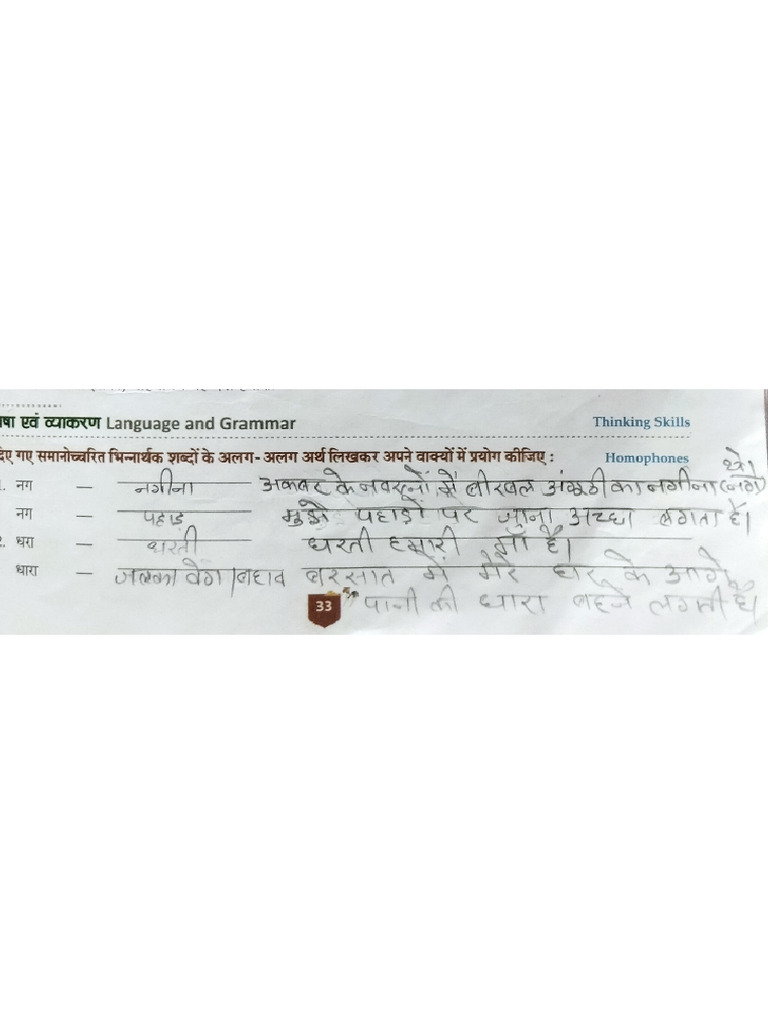 षा एवं व्याकरण Language and Grammar Thinking Skills
दिए गए समानोच्चरित भिन्नार्थक शब्दों के अलग- अलग अर्थ लिखकर अपने वाक्यों में प्रयोग कीजिए : Homophones
थे।
1. नग – नगीना अकबर के नवरत्नों में बीरबल अंगूठी का नगीना (नग)
नग – पहाड़ मुझे पहाड़ों पर जाना अच्छा लगता है।
2. धरा – धरती धरती हमारी माँ है।
धारा – जलका वेग/बहाव बरसात में मेरे घर के आगे
33 पानी की धारा बहने लगती है।